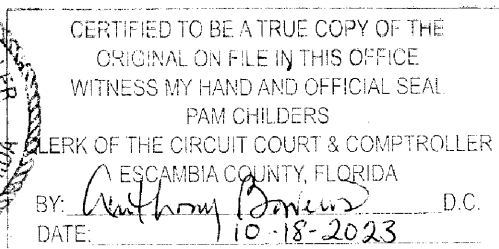 CERTIFIED TO BE A TRUE COPY OF THE
ORIGINAL ON FILE IN THIS OFFICE
WITNESS MY HAND AND OFFICIAL SEAL
PAM CHILDERS
LERK OF THE CIRCUIT COURT & COMPTROLLER
ESCAMBIA COUNTY, FLORIDA
BY: Anthony Bowens D.C.
DATE: 10-18-2023